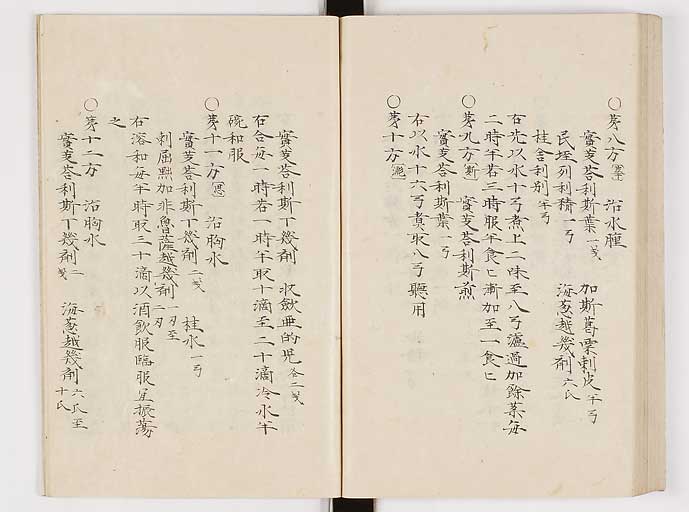 ○第八方 治水腫
實芰荅利斯葉 一戔 加斯蔦栗剌皮 半弓
民垤列利精 一弓 海蔥越幾剤 六氏
桂舎利別 半弓
右先以水十弓煮上二味至八弓濾過加餘薬每
二時半若三時服半食匕漸加至一食匕
○第九方 實芰荅利斯煎
實芰荅利斯葉 一弓
右以水十六弓煮取八弓聽用
○第十方
實芰荅利斯丁幾剤 氷㱃垂的児 各二戔
右合每一時若一時半取十滴至二十滴冷水半
碗和服
○第十一方 治胸水
實芰荅利斯丁幾剤 二戔 桂水 一弓
剌屈㸃加非魯薩越幾剤 一刃至二刃
右溶和每半時取三十滴以酒飲服臨服宜振蕩
之
○第十二方 治胸水
實芰荅利斯丁幾剤 二戔 海蔥越幾剤 六氏至十氏